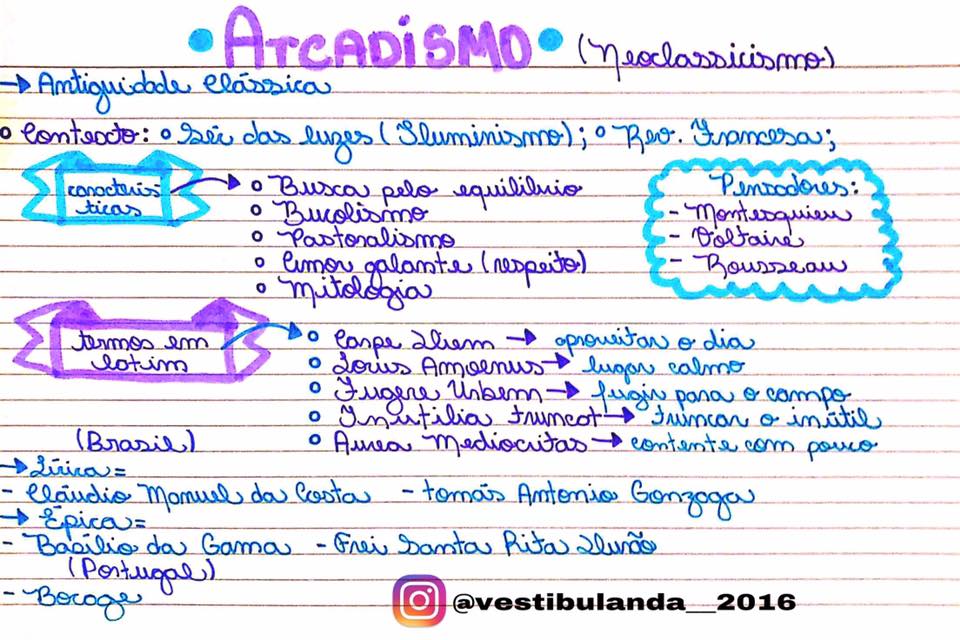 • ARCADISMO • (Neoclassicismo)
→ Antiguidade Clássica
° Contexto: ° Séc das luzes (Iluminismo); ° Rev. Francesa;
caracterís
ticas
° Busca pelo equilíbrio
° Bucolismo
° Pastoralismo
° Amor galante (respeito)
° Mitologia
Pensadores:
- Montesquieu
- Voltaire
- Rousseau
termos em
latim
° Carpe Diem → aproveitar o dia
° Locus Amoenus → lugar calmo
° Fugere Urbem → fugir para o campo
° Inutilia Truncat → truncar o inútil
° Aurea Mediocritas → contente com pouco
(Brasil)
→ Lírica =
- Cláudio Manuel da Costa - tomás Antonio Gonzaga
→ Épica =
- Basílio da Gama - Frei Santa Rita Durão
(Portugal)
- Bocage
@vestibulanda__2016